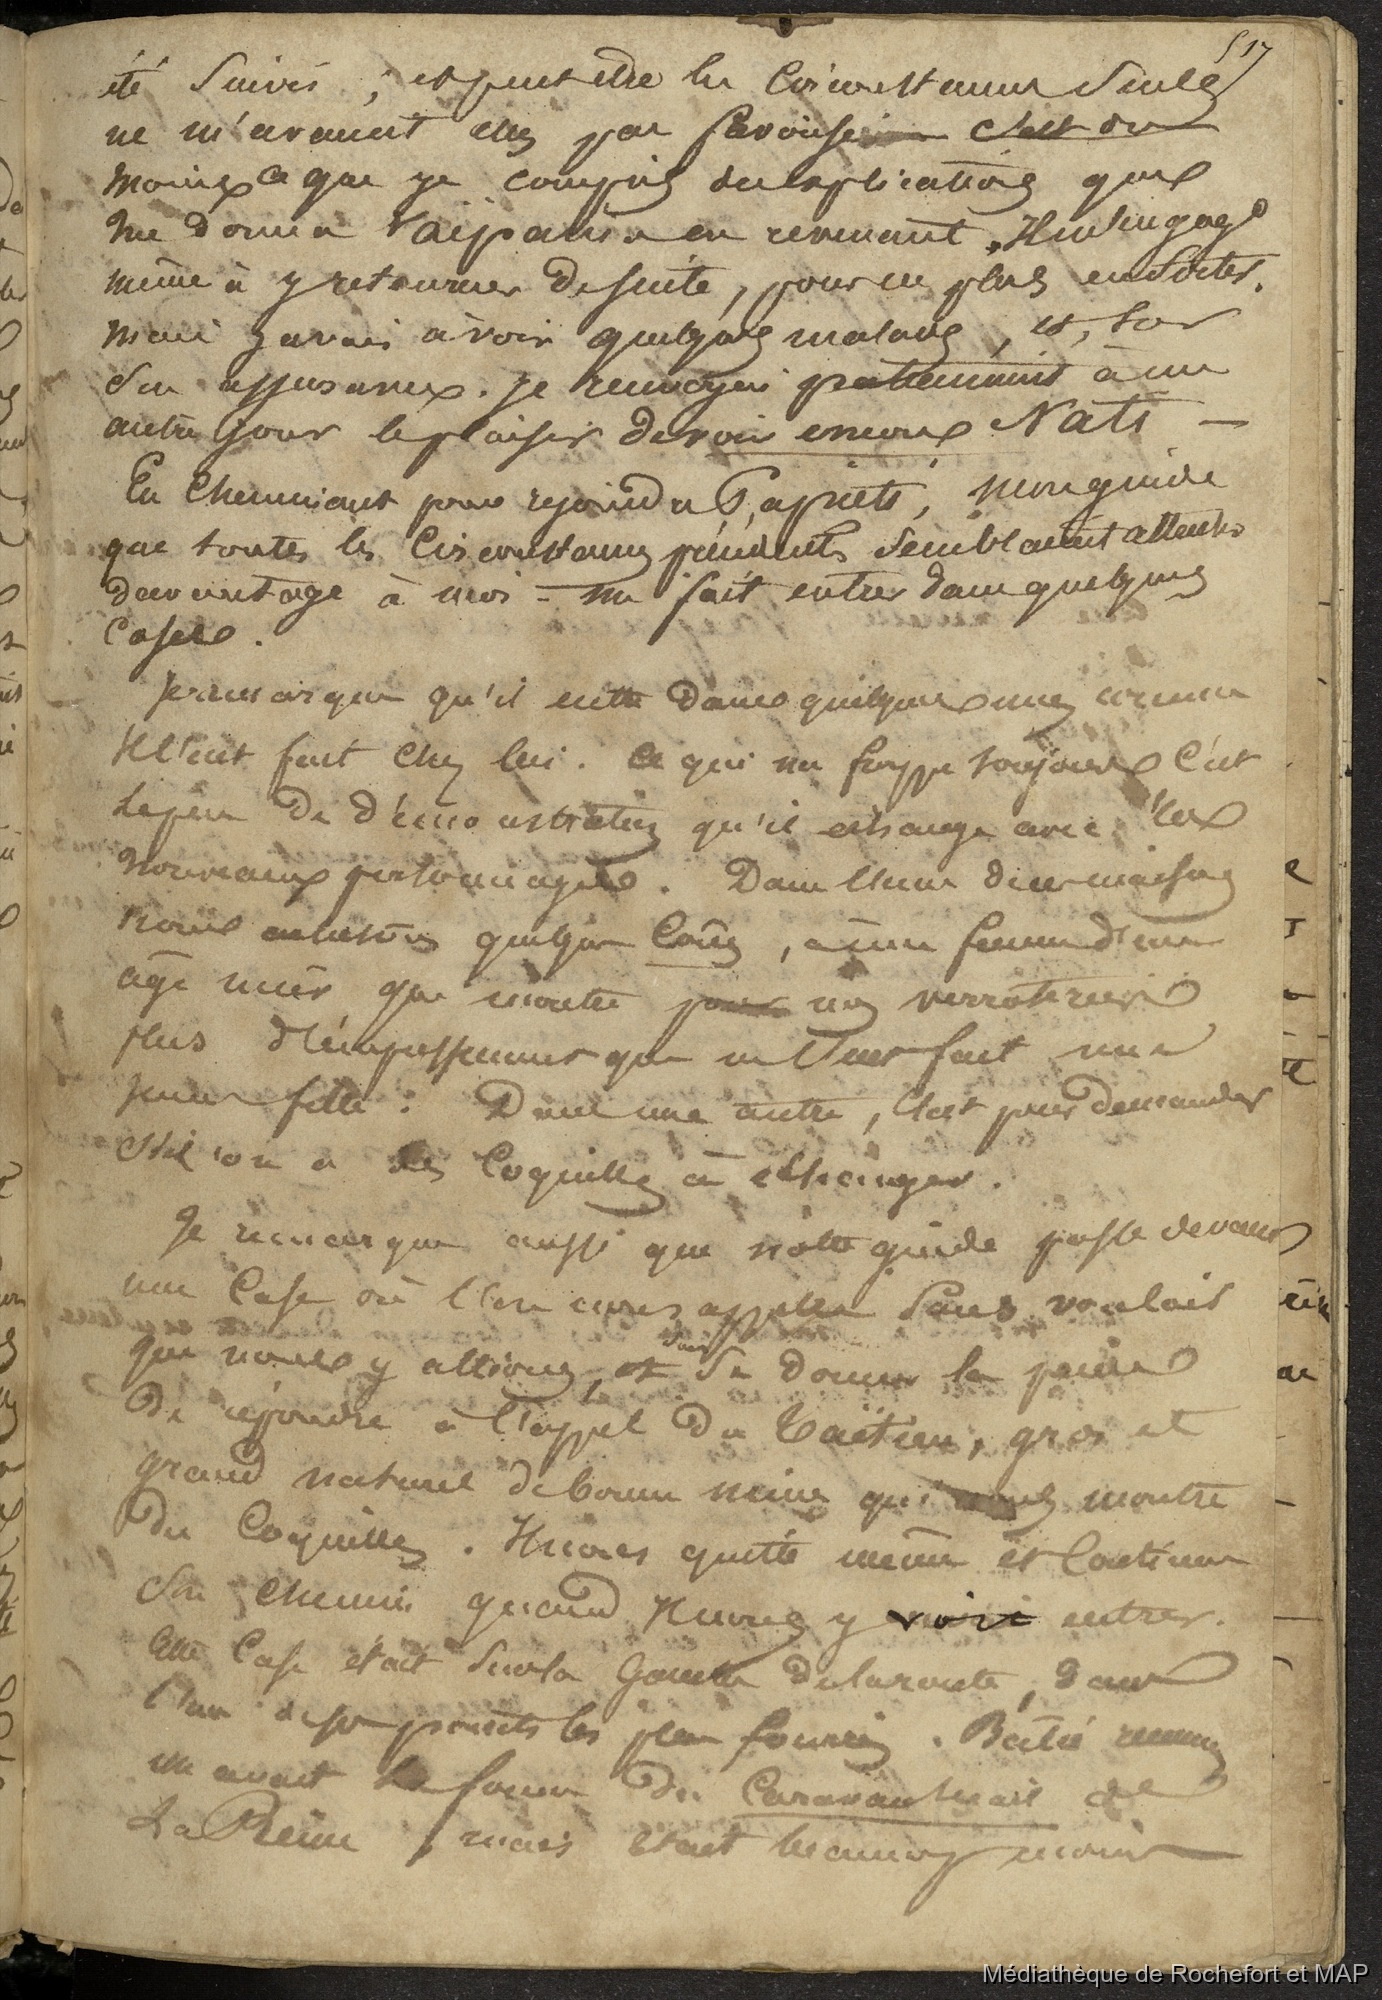 517
été suivis ; et peut être les Circonstances seules
ne m'avaient elles pas favorisé c'est du
moins ce que je compris des explications que
me donna en revenant. Il m'engagea
même à y retourner de suite, pour
mais j'avais à voir quelques malades, et, sur
son je renvoyai à un
autre jour le plaisir de voir encore Nati —
En cheminant pour rejoindre Papiété, mon guide
que toutes les Circonstances semblaient attacher
davantage à moi - me fait entrer dans quelques
Cases.
Je remarque qu'il entre dans quelques unes comme
Il l'eut fait chez lui. Ce qui me frappe toujours C'est
Le peu de démonstrations qu'il échange avec les
nouveaux personnages. Dans l'une des maisons
nous quelques , à une femme d'un
âge mûr que montre pour nos verroteries
plus d'empressement que ne l'eut fait une
jeune fille : Dans une autre, C'est pour demander
si l'on a des Coquilles à échanger.
Je remarque aussi que notre guide passe devant
une Case où l'on nous appelle sans vouloir
que nous y allions, et sans se donner la peine
de répondre à l'appel du Taïtien, gros et
grand naturel de bonne mine qui nous montre
des Coquilles. Il nous quitte même et Continue
son chemin quand Il nous y voit entrer.
Cette Case était sur la Gauche de la route, dans
l'un des points les plus fourrés.
en avait la forme du Caravansérail de
La Reine, mais était beaucoup moins
Médiathèque de Rochefort et MAP